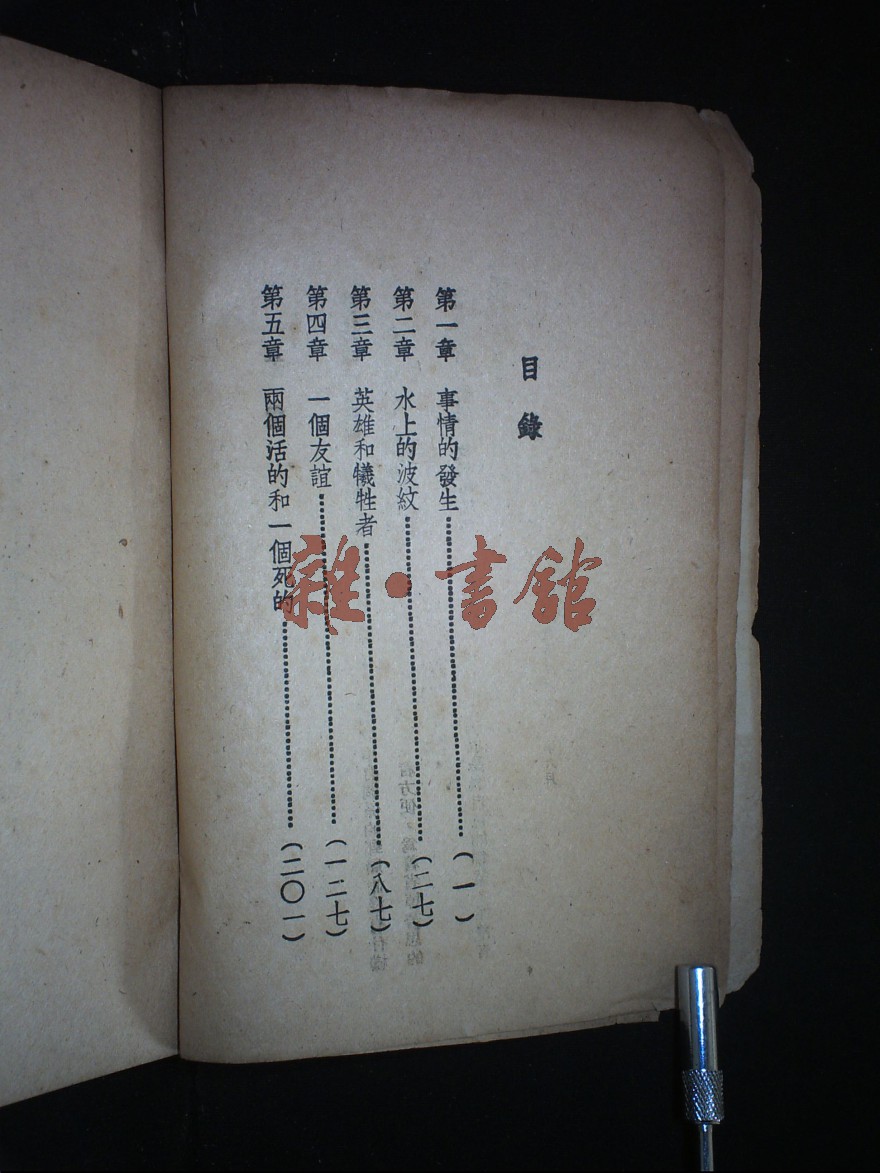 目錄
第一章 事情的發生………(一)
第二章 水上的波紋………(二七)
第三章 英雄和犧牲者………(八七)
第四章 一個友誼………(一二七)
第五章 兩個活的和一個死的………(二〇一)
雜·書館